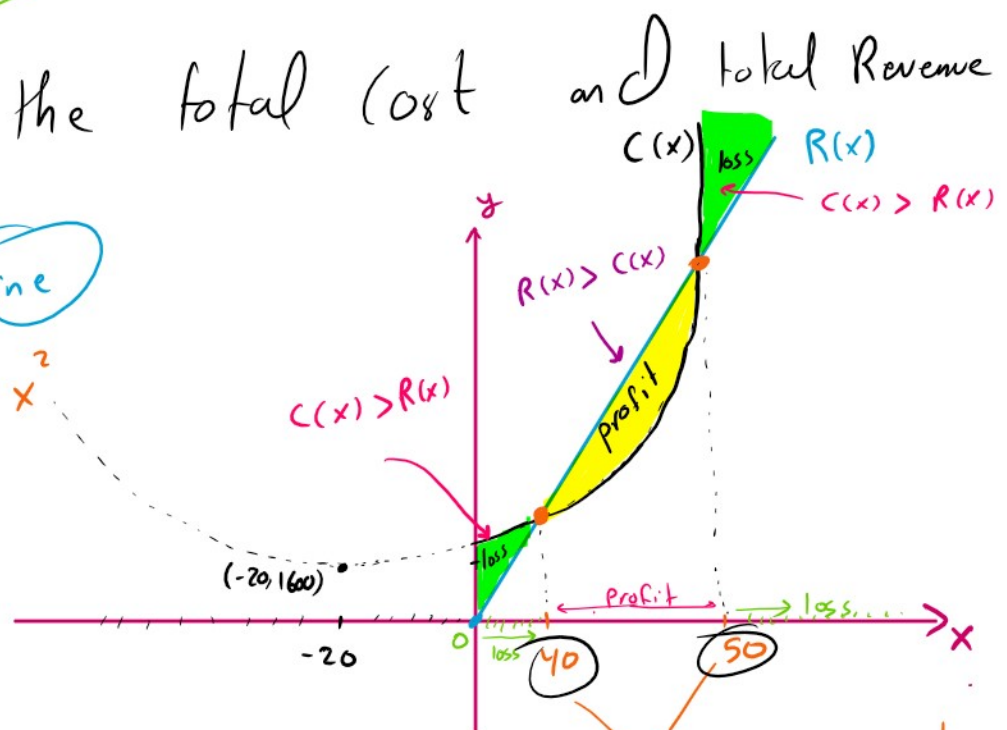 the total Cost and total Revenue
C(x)
loss
R(x)
C(x) > R(x)
y
R(x) > C(x)
ne
x²
C(x) > R(x)
profit
loss
(-20, 1600)
profit
loss....
x
-20
0
loss
40
50